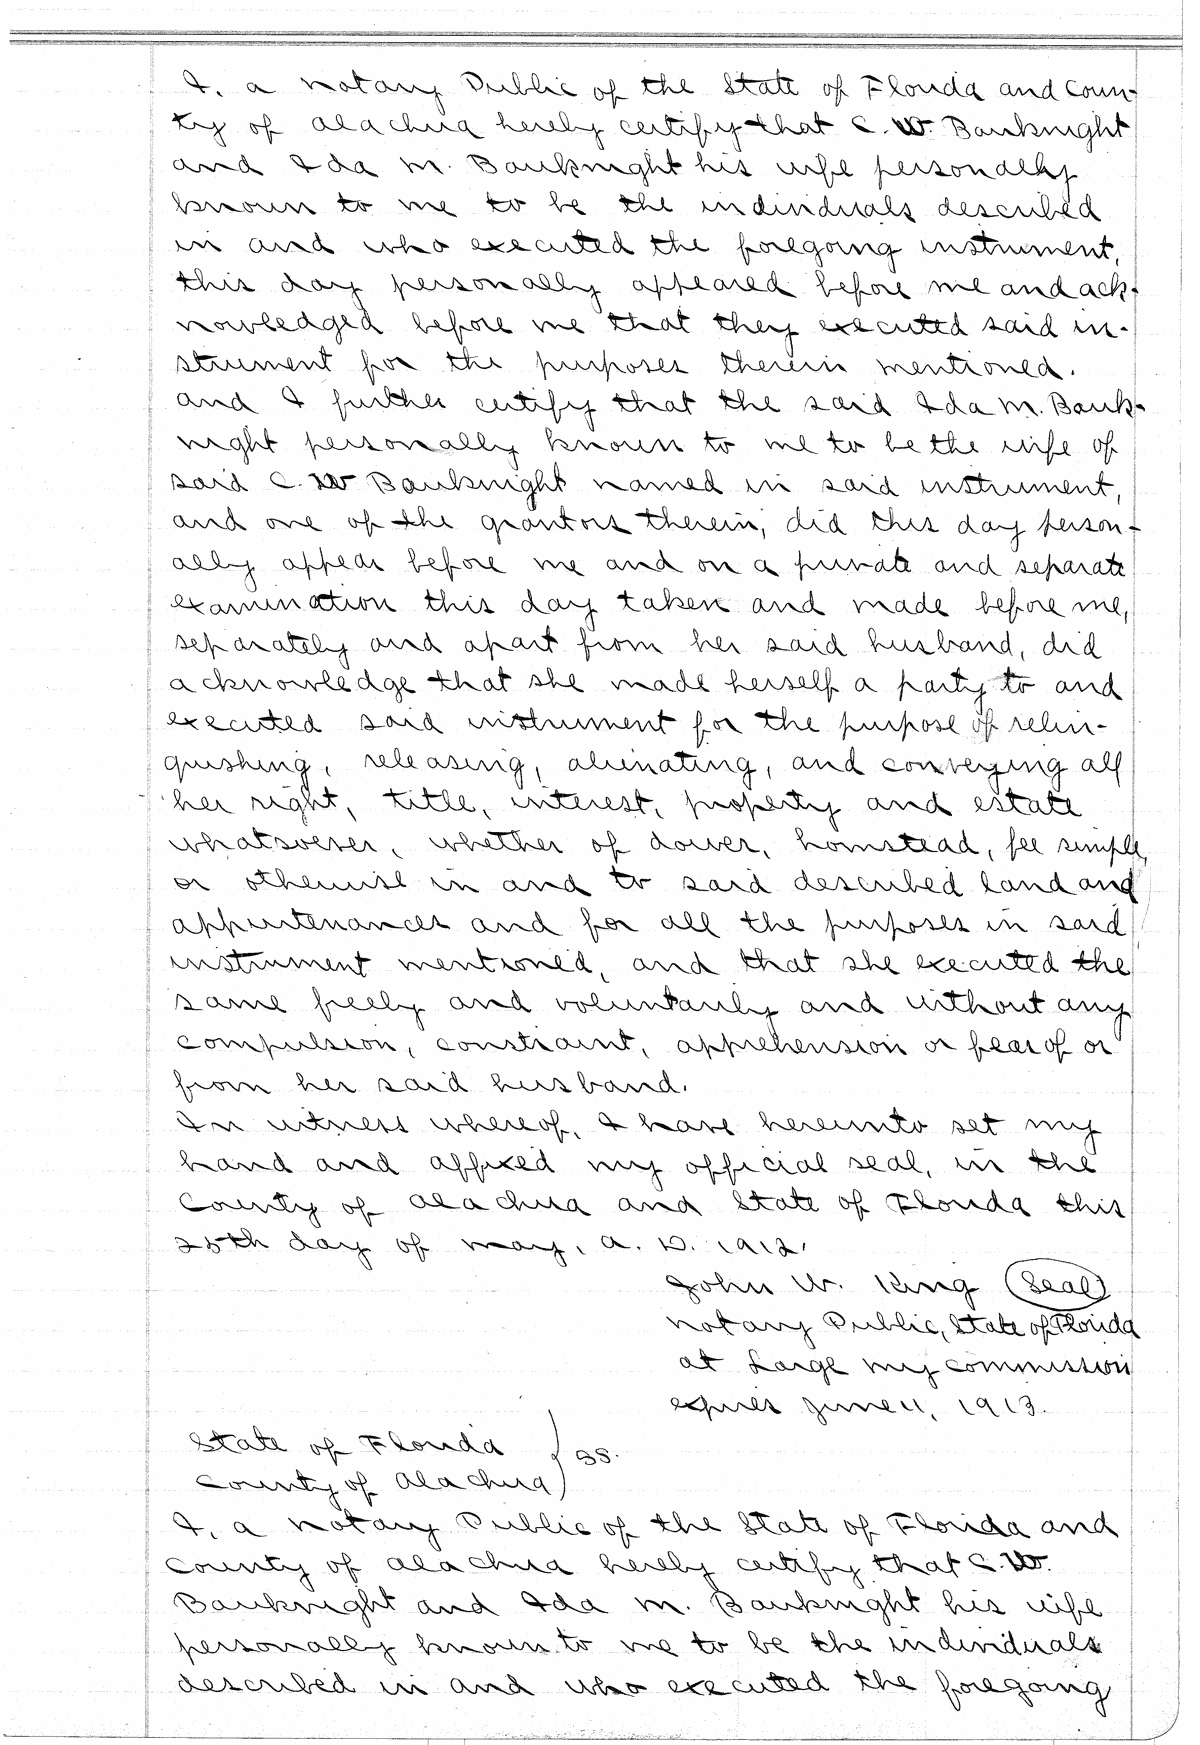 I, a Notary Public of the State of Florida and Coun-
ty of Alachua hereby certify that C. W. Bauknight
and Ida M. Bauknight his wife personally
known to me to be the individuals described
in and who executed the foregoing instrument,
this day personally appeared before me and ack-
nowledged before me that they executed said in-
strument for the purposes therein mentioned.
and I further certify that the said Ida M. Bauk-
night personally known to me to be the wife of
said C. W Bauknight named in said instrument,
and one of the grantors therein, did this day person-
ally appear before me and on a private and separate
examination this day taken and made before me,
separately and apart from her said husband, did
acknowledge that she made herself a party to and
executed said instrument for the purpose of relin-
quishing, releasing, alienating, and conveying all
her right, title, interest, property and estate
whatsoever, whether of dower, homstead, fee simple,
or otherwise in and to said described land and
appurtenances and for all the purposes in said
instrument mentioned, and that she executed the
same freely and voluntarily and without any
compulsion, constraint, apprehension or fear of or
from her said husband.
In witness whereof, I have hereunto set my
hand and affixed my official seal, in the
County of Alachua and State of Florida this
25th day of May, A. D. 1912.
John W. King (Seal)
Notary Public, State of Florida
at Large my commission
expires June 11, 1913.
State of Florida ) ss.
County of Alachua)
I, a Notary Public of the State of Florida and
County of Alachua hereby certify that C. W.
Bauknight and Ida M. Bauknight his wife
personally known to me to be the individuals
described in and who executed the foregoing